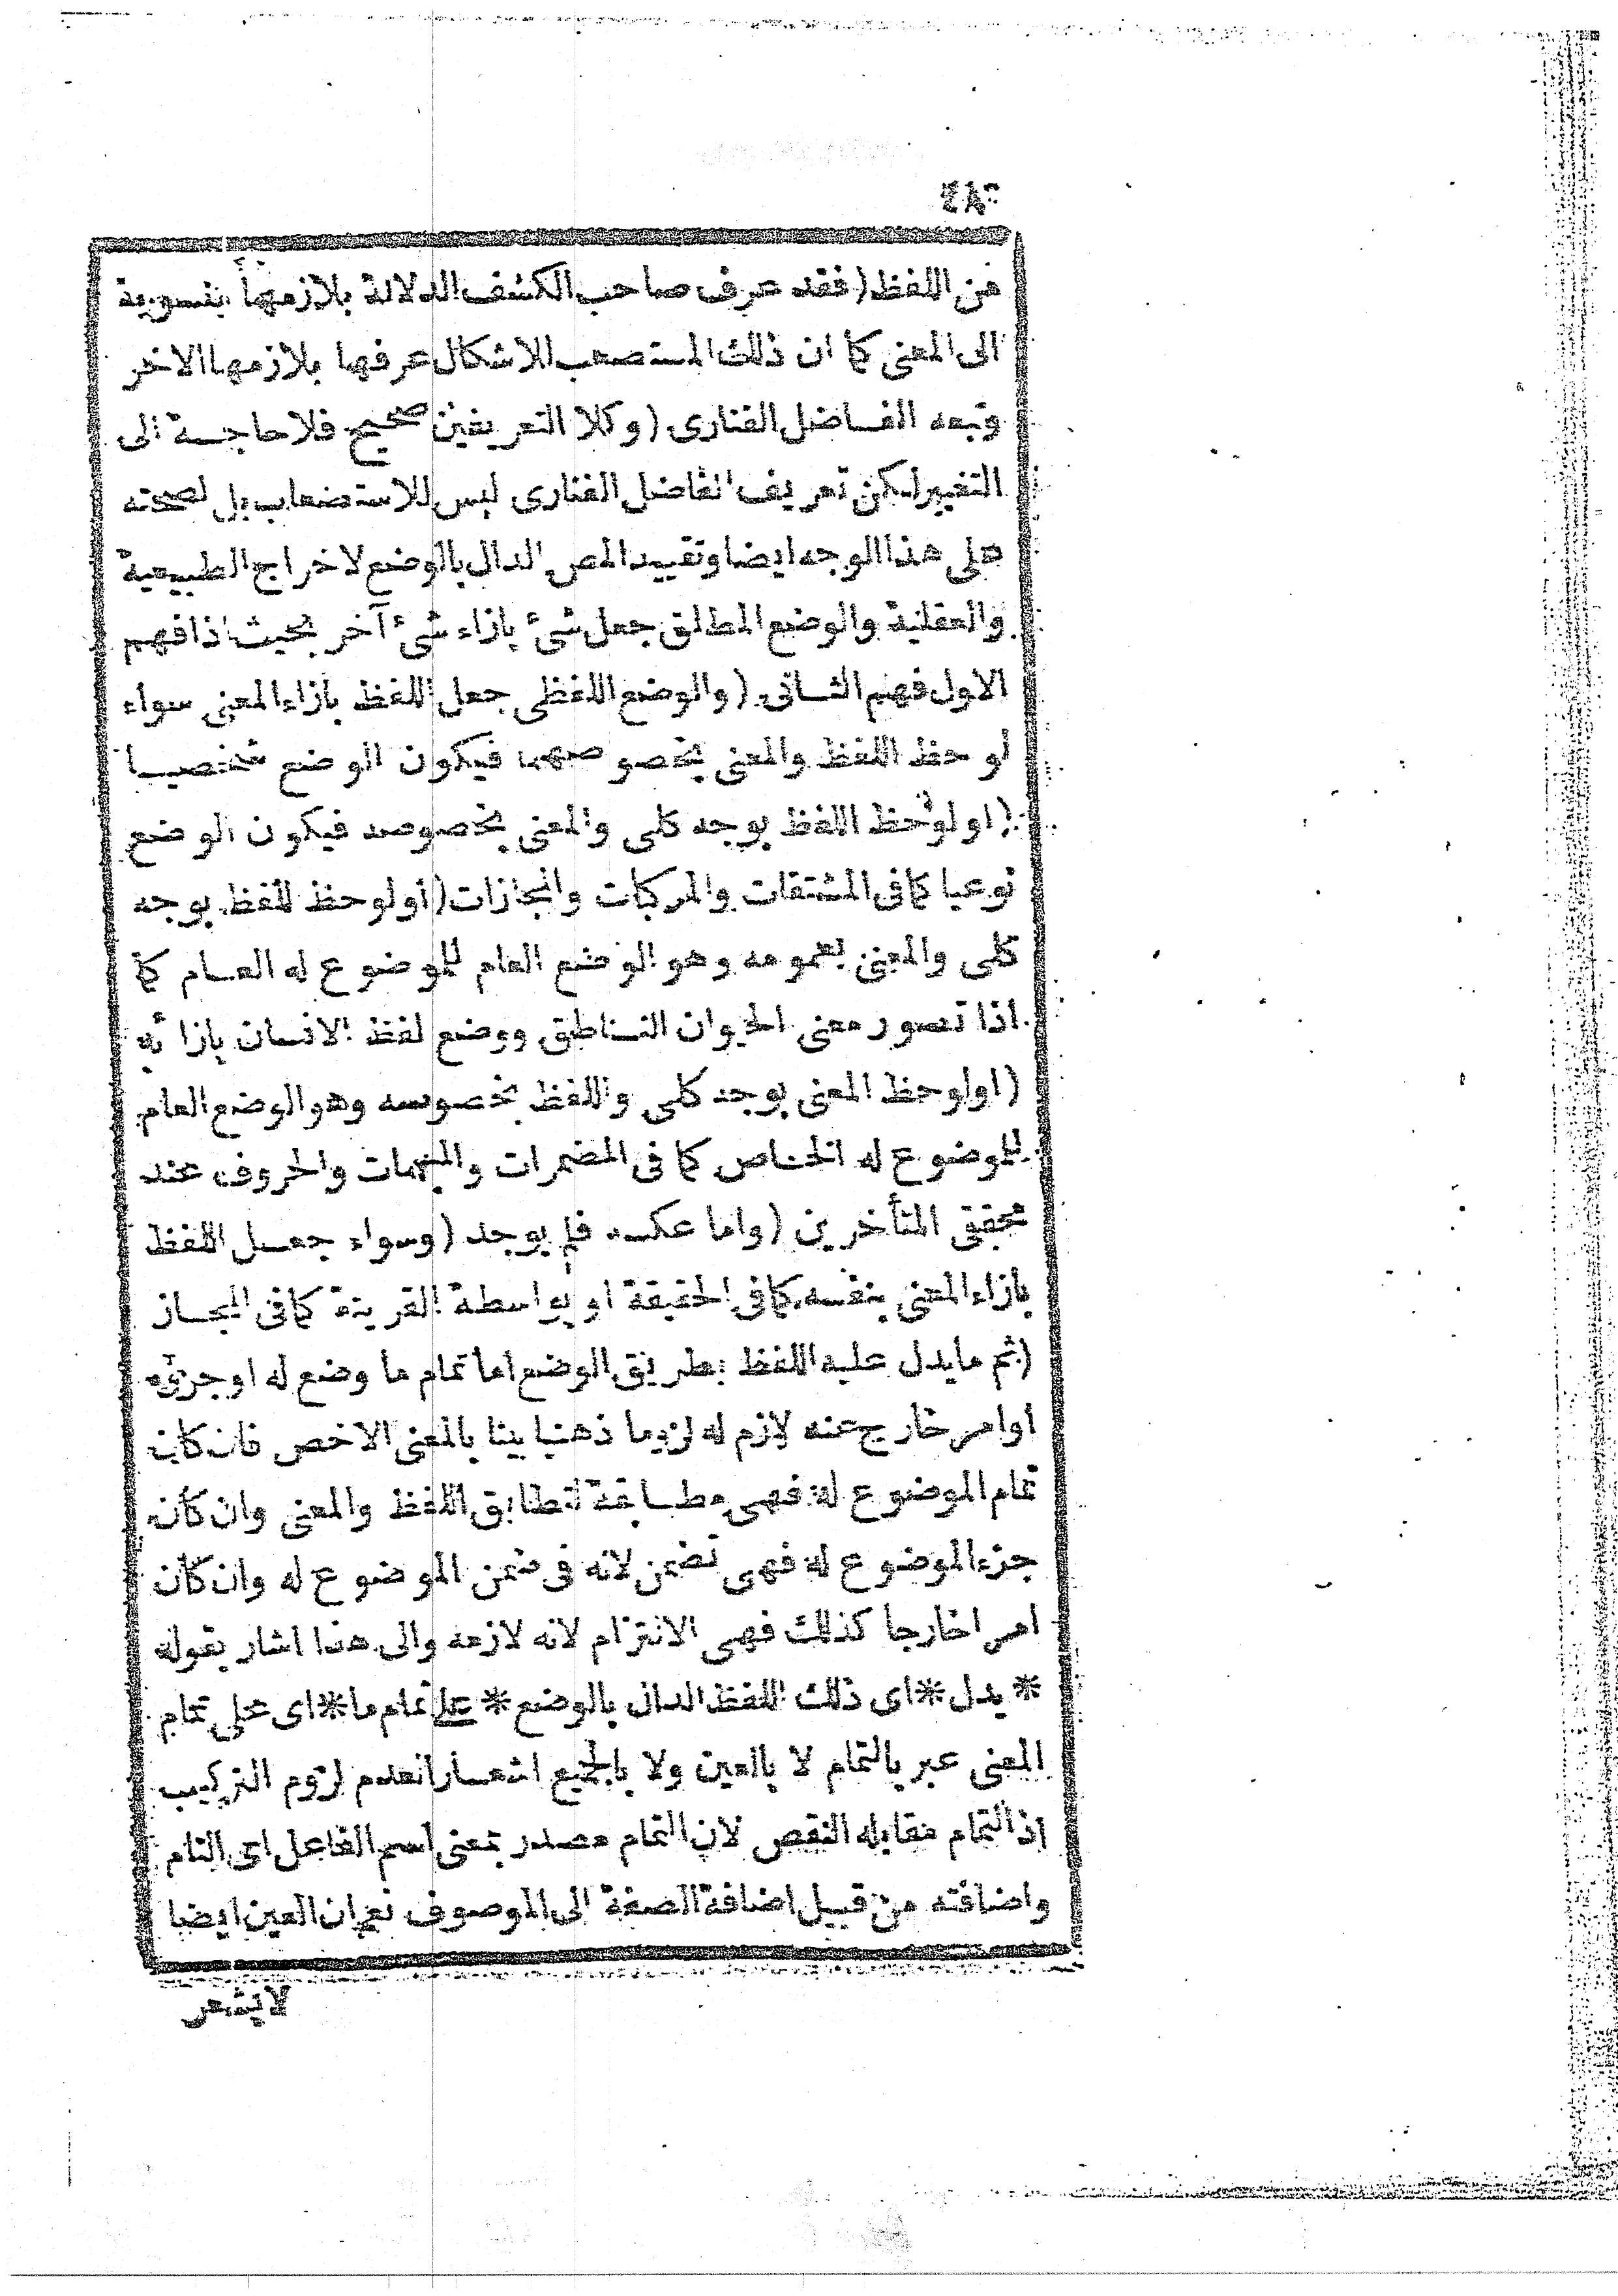 من اللفظ (فقد عرف صاحب الكشف الدلالة بلازمها بنسوبة
الى المعنى كما ان ذلك المستصعب للاشكال عرفها بلازمها الاخر
وتبعه الفاضل الفنارى (وكلا التعريفين صحيح فلا حاجة الى
التغيير لكن تعريف الفاضل الفنارى ليس للاستصعاب بل لصحته
على هذا الوجه ايضا وتقييد المص الدال بالوضع لاخراج الطبيعية
والعقلية والوضع المطلق جعل شئ بازاء شئ آخر بحيث اذا فهم
الاول فهم الثانى (والوضع اللفظى جعل اللفظ بازاء المعنى سواء
لو حظ اللفظ والمعنى بخصوصهما فيكون الوضع شخصيا
(او لوحظ اللفظ بوجه كلى والمعنى بخصوصه فيكون الوضع
نوعيا كما فى المشتقات والمركبات والمجازات (أو لوحظ للفظ بوجه
كلى والمعنى بعمومه وهو الوضع العام للموضوع له العام كما
اذا تصور معنى الحيوان الناطق ووضع لفظ الانسان بازائه
(او لوحظ المعنى بوجه كلى واللفظ بخصوصه وهو الوضع العام
للموضوع له الخاص كما فى المضمرات والمبهمات والحروف عند
محققى المتأخرين (واما عكسه فلم يوجد (وسواء جعل اللفظ
بازاء المعنى بنفسه كما فى الحقيقة او بواسطة القرينة كما فى المجاز
(ثم ما يدل عليه اللفظ بطريق الوضع اما تمام ما وضع له او جزئه
أوامر خارج عنه لازم له لزوما ذهنيا بينا بالمعنى الاخص فان كان
تمام الموضوع له فهى مطابقة لتطابق اللفظ والمعنى وان كان
جزء الموضوع له فهى تضمن لانه فى ضمن الموضوع له وان كان
امرا خارجا كذلك فهى الالتزام لانه لازمه والى هذا اشار بقوله
* يدل * اى ذلك اللفظ الدال بالوضع * على تمام ما * اى على تمام
المعنى عبر بالتمام لا بالعين ولا بالجميع اشعارا لعدم لزوم التركيب
اذ التمام مقابله النقص لان التمام مصدر بمعنى اسم الفاعل اى التام
واضافته من قبيل اضافة الصفة الى الموصوف نعم ان العين ايضا
لا يشعر